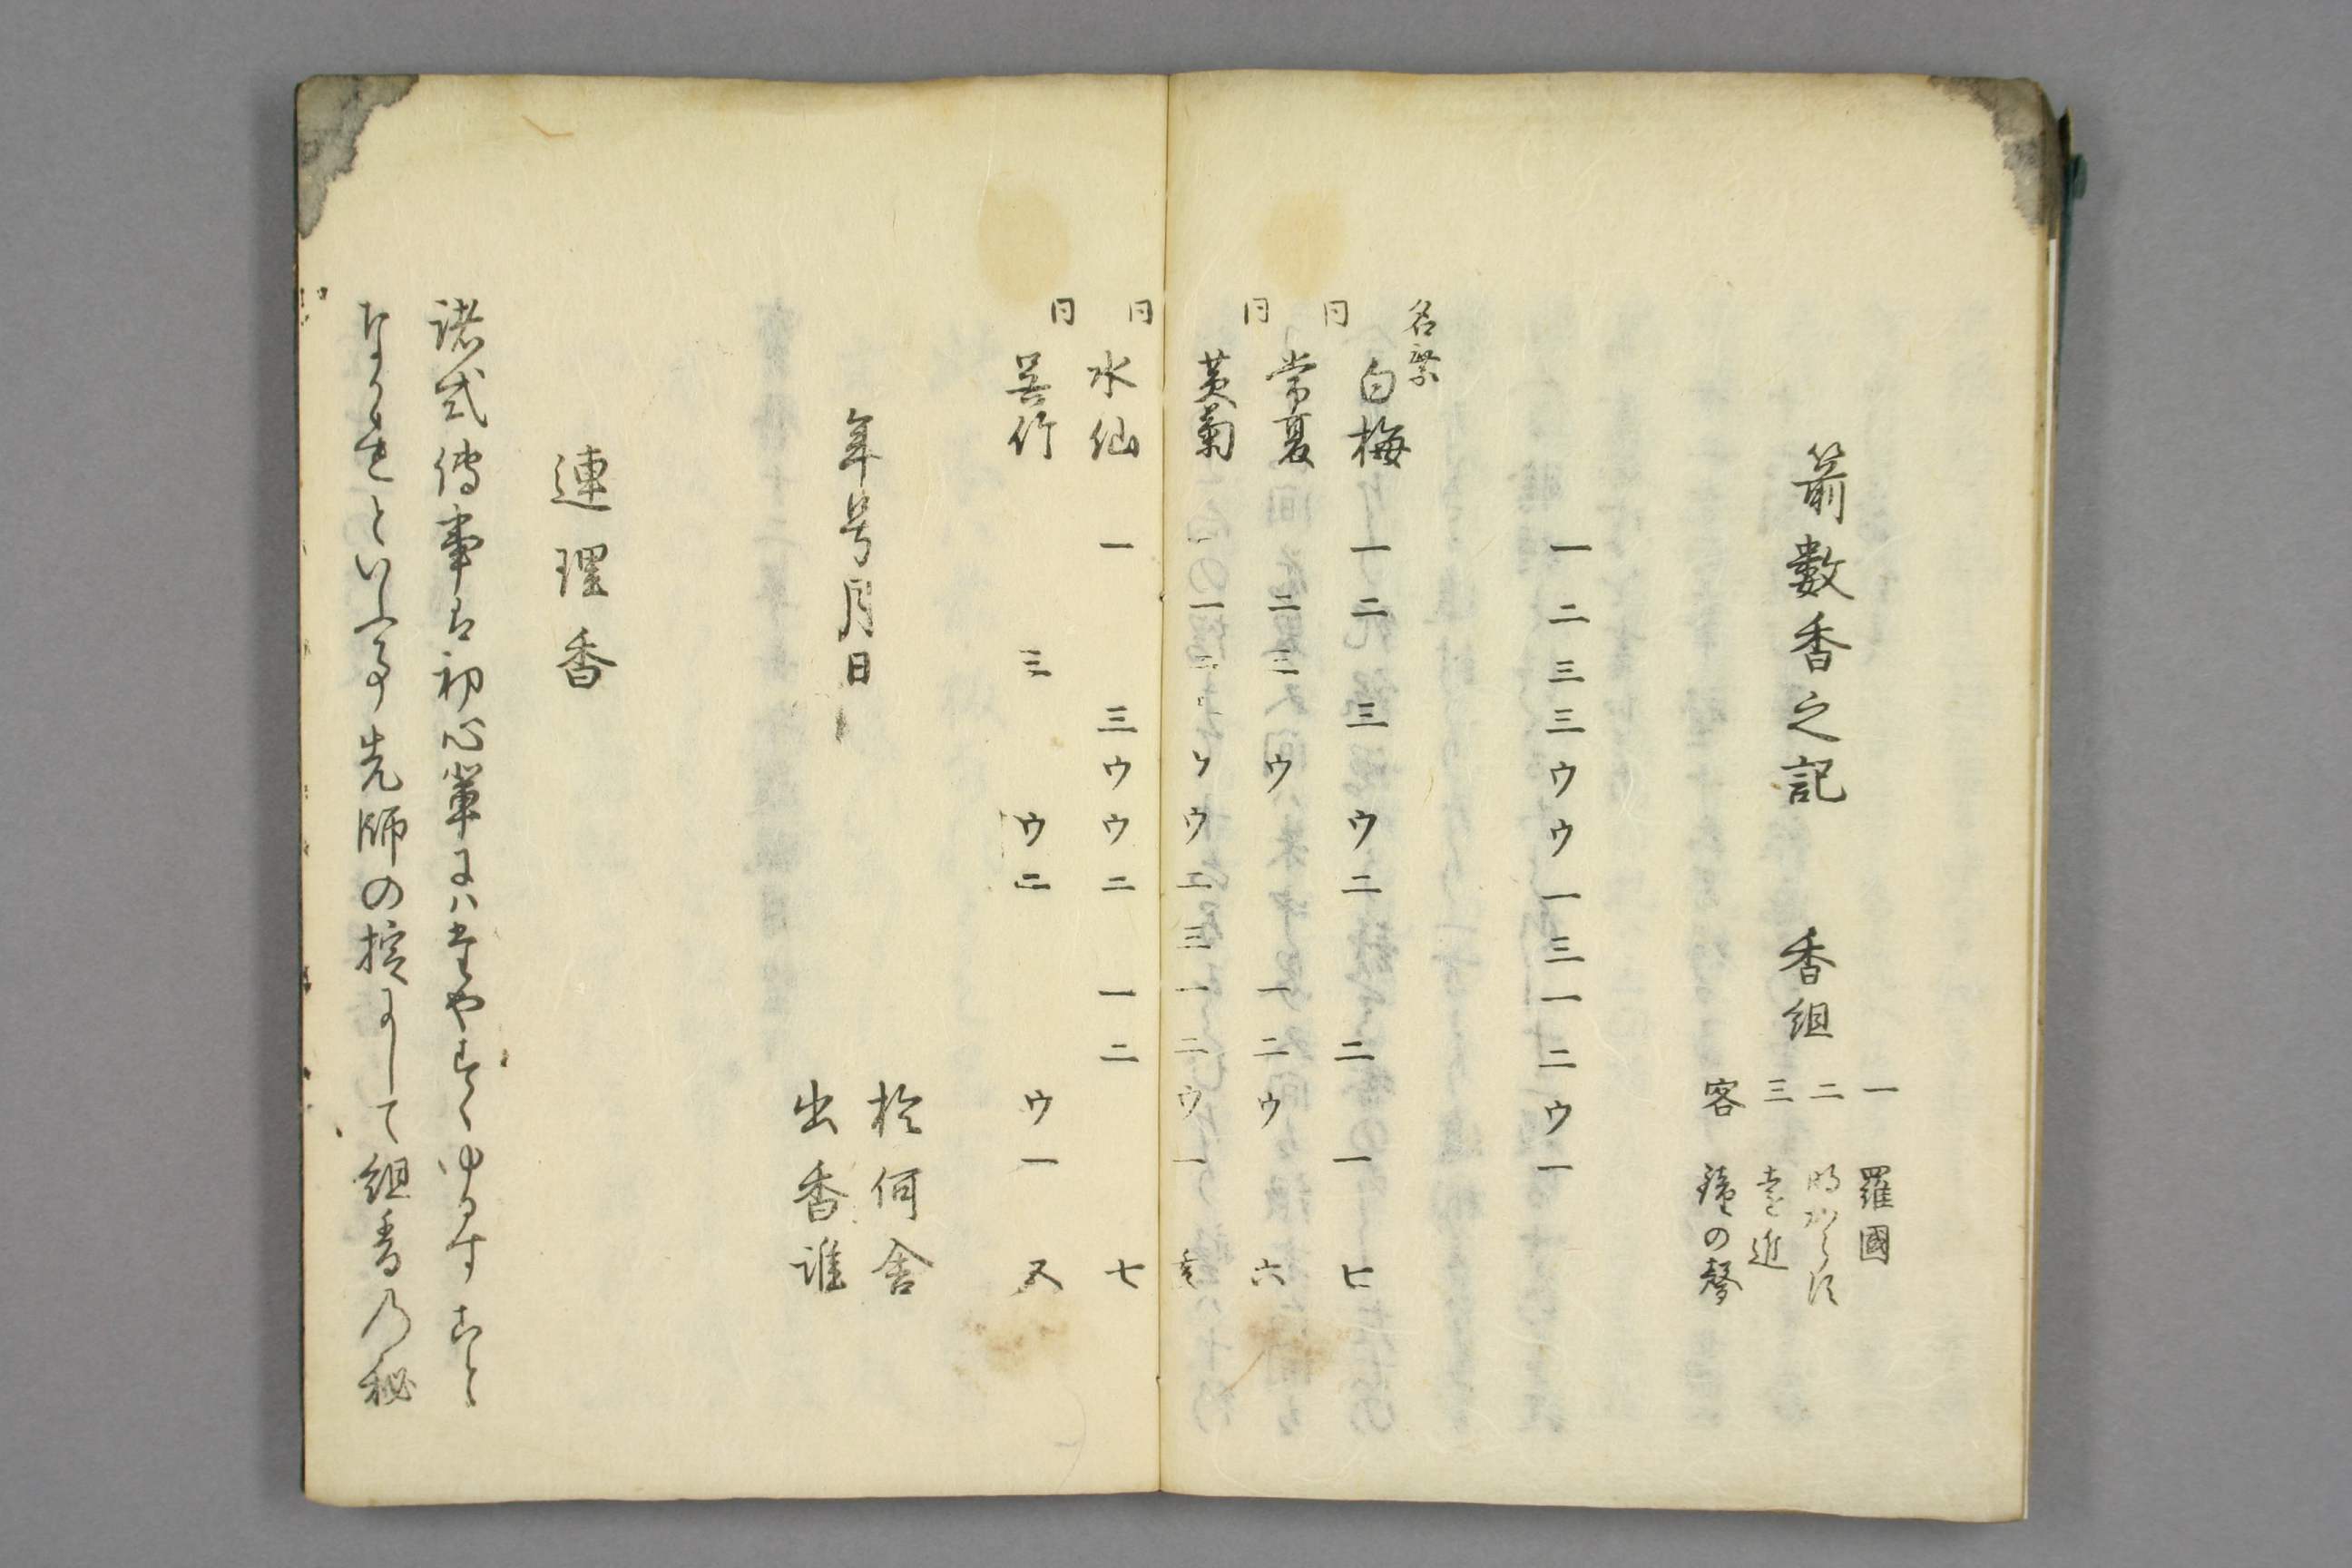 箭數香之記　香組
一　羅國
二
三　遠近
客　鐘の聲
一二三三ウウ一三一二ウ一
名乗
白梅　一二三ウ二二一　七
同　常夏　二三ウ一二ウ　六
同　黄菊　一三ウウ二三一二ウ一
同　水仙　一三ウウ二一二　七
同　呉竹　三ウ二ウ一　又
年号月日
於何舎
出香誰
連理香
諸式傳事は初心輩にハたやすくゆるすこと
なかれといふ事先師の掟にして組香乃秘